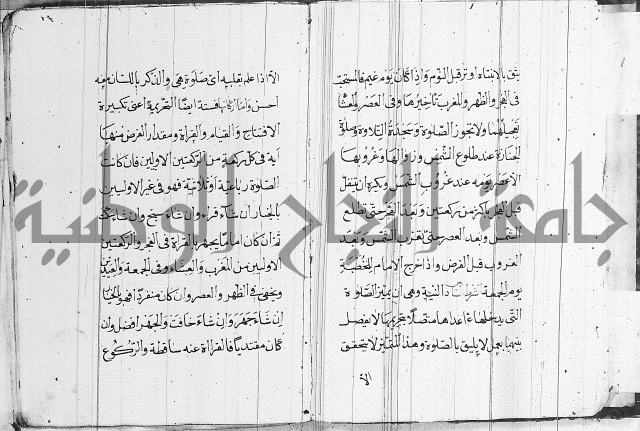 يثق بالانتباه اوتر قبل النوم واذا كان يوم غيم فالمستحب
في الفجر والظهر والمغرب تأخيرها وفي العصر والعشا
تعجيلهما ولا تجوز الصلوة وسجدة التلاوة وصلوة
الجنازة عند طلوع الشمس وزوالها وغروبها
الا عصر يومه عند غروب الشمس ويكره ان يتنفل
قبل الفجر باكثر من ركعتين وبعد الفجر حتى تطلع
الشمس وبعد العصر حتى تغرب الشمس وبعد
الغروب قبل الفرض واذا خرج الامام للخطبة
يوم الجمعة النية وهي ان يميز الصلوة
التي يدخلها عما عداها متصلا بتحريمها لا يفصل
بينهما بعمل لا يليق بالصلوة وهذا التمييز لا يتحقق
الا
الا اذا علم بقلبه اي صلوة هي والذكر باللسان معه
احسن واما اركانها فستة ايضا التحريمة اعني تكبيرة
الافتتاح والقيام والقراة ومقدار الفرض منها
اية في كل ركعة من الركعتين الاوليين فان كانت
الصلوة رباعية او ثلاثية فهو في غير الاوليين
بالخيار ان شاء قراء وان شاء سبح وان شاء سكت
ثم ان كان اماما يجهر بالقراة في الفجر والركعتين
الاوليين من المغرب والعشاء وفي الجمعة والعيدين
ويخفي في الظهر والعصر وان كان منفردا فهو بالخيار
ان شاء جهر وان شاء خافت والجهر افضل وان
كان مقتديا فالقراة عنه ساقطة والركوع
جامعة النجاح الوطنية